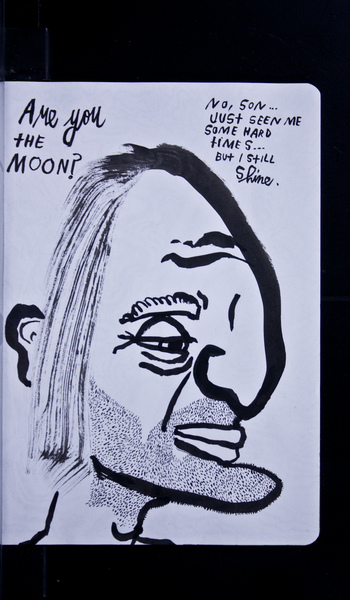 Are you
THE
MOON?
NO, SON...
JUST SEEN ME
SOME HARD
TIMES...
BUT I STILL
Shine.